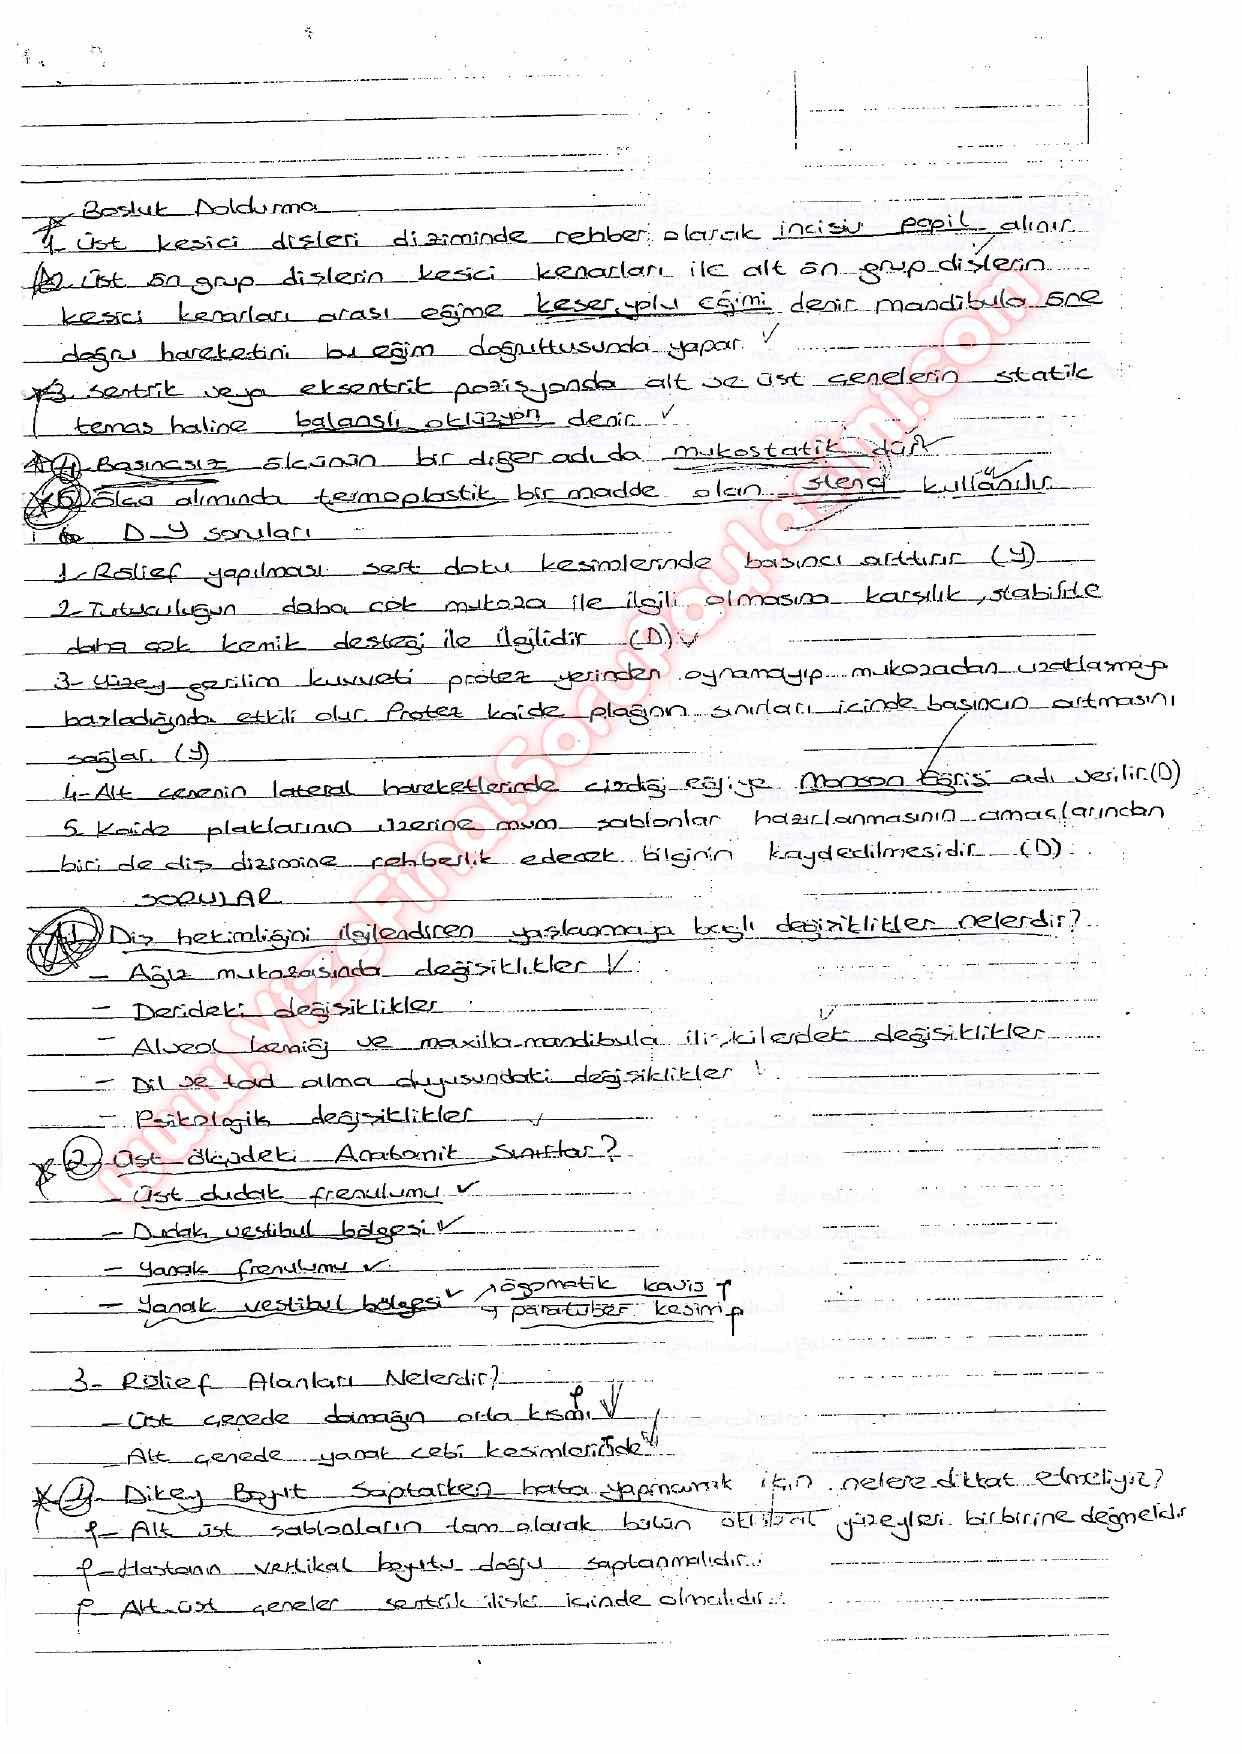 Boşluk Doldurma
1- üst kesici dişleri diziminde rehber olarak incisiv papil alınır
2- üst ön grup dişlerin kesici kenarları ile alt ön grup dişlerin
kesici kenarları arası eğime keser yolu eğimi denir mandibula öne
doğru hareketini bu eğim doğrultusunda yapar.
3- sentrik veya eksentrik pozisyonda alt ve üst çenelerin statik
temas haline balanslı oklüzyon denir
4- Basınçsız ölçünün bir diğer adı da mukostatik dür
5- ölçü alımında termoplastik bir madde olan stenç kullanılır.
D-Y soruları
1- Rölief yapılması sert doku kesimlerinde basıncı arttırır (Y)
2- Tutuculuğun daha çok mukoza ile ilgili olmasına karşılık, stabilite
daha çok kemik desteği ile ilgilidir (D)
3- Yüzey gerilim kuvveti protez yerinden oynamayıp mukozadan uzaklaşmaya
başladığında etkili olur. Protez kaide plağın sınırları içinde basıncın artmasını
sağlar. (Y)
4- Alt çenenin lateral hareketlerinde çizdiği eğriye Monson Eğrisi adı verilir. (D)
5. Kaide plaklarının üzerine mum şablonlar hazırlanmasının amaçlarından
biri de diş dizimine rehberlik edecek bilginin kaydedilmesidir (D)
SORULAR
1) Diş hekimliğini ilgilendiren yaşlanmaya bağlı değişiklikler nelerdir?
- Ağız mukozasında değişiklikler
- Derideki değişiklikler
- Alveol kemiği ve maxilla-mandibula ilişkilerdek değişiklikler
- Dil ve tad alma duyusundaki değişiklikler
- Psikolojik değişiklikler
2) Üst ölçüdeki Anatomik Sınırlar?
- Üst dudak frenulumu
- Dudak vestibul bölgesi
- Yanak frenulumu
- Yanak vestibul bölgesi
zögomatik kavis
paratüber kesim
3- Rölief Alanları Nelerdir?
- Üst çenede damağın orta kısmı
Alt çenede yanak cebi kesimlerinde
4- Dikey Boyut Saptarken hata yapmamak için nelere dikkat etmeliyiz?
- Alt üst şablonların tam olarak bütün oklüzal yüzeyleri birbirine değmelidir
- Hastanın vertikal boyutu doğru saptanmalıdır.
- Alt-üst çeneler sentrik ilişki içinde olmalıdır.
www.VizeFinalSoruPaylasimi.com